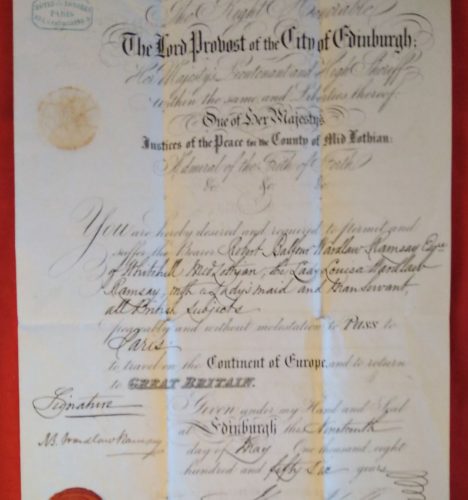 HOTEL DE LONDRES
PARIS
The Right Honorable
The Lord Provost of the City of Edinburgh;
Her Majesty's Lieutenant and High Sheriff
within the same and Liberties thereof:
One of Her Majesty's
Justices of the Peace for the County of Mid Lothian:
Admiral of the Firth of Forth
&c &c &c
You are hereby desired and required to permit and
suffer the Bearer Robert Balfour Wardlaw Ramsay Esqre
of Whitehill Mid Lothian, the Lady Louisa Wardlaw
Ramsay, with a Lady's maid and Man Servant
all British Subjects
peaceably and without molestation to Pass to
Paris
to travel on the Continent of Europe, and to return
to GREAT BRITAIN.
Signature
Given under my Hand and Seal
at Edinburgh the Nineteenth
R B Wardlaw Ramsay
day of May One thousand eight
hundred and fifty years